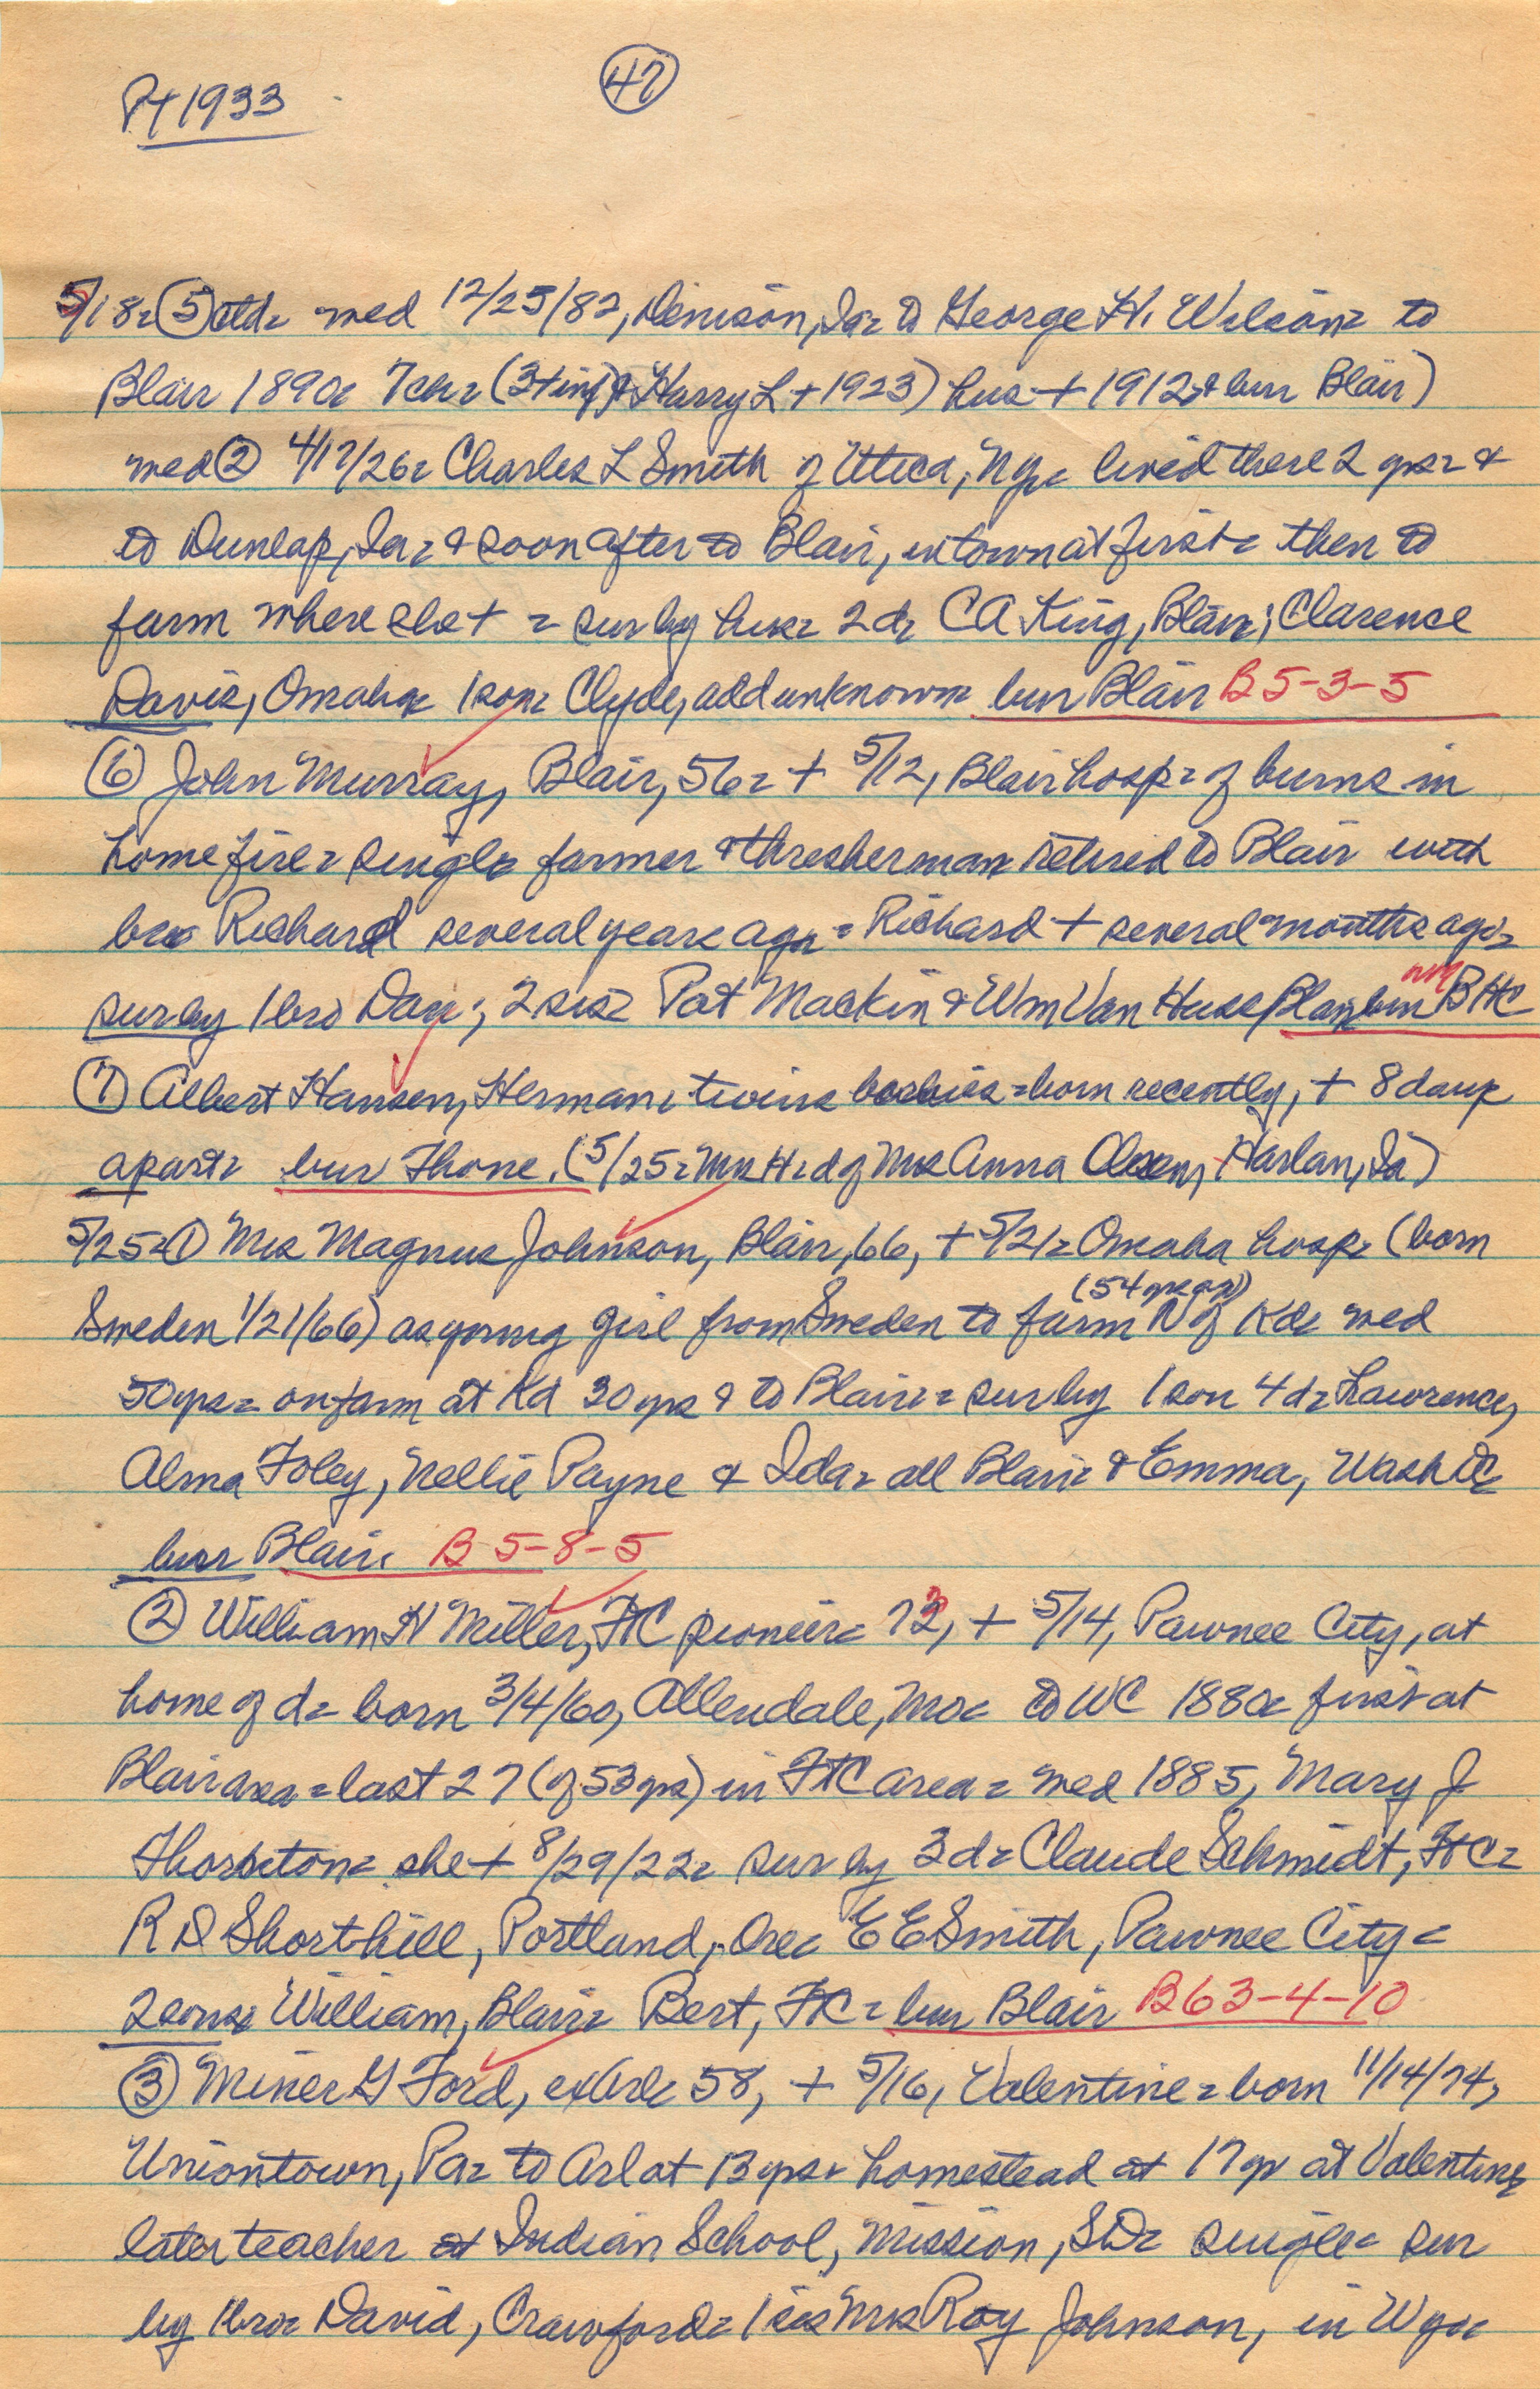 Pt 1933
47
5/18= (5) ctd= med 12/25/82, Denison, Ia= to George H. Wilson= to
Blair 1890= 7ch= (3+inf) & Harry L + 1923) hus + 1912= & bur Blair)
med (2) 4/17/26= Charles L Smith of Utica, Ny= lived there 2 yrs= &
to Dunlap, Ia= & soon after to Blair, in town at first= then to
farm where she + = sur by hus= 2d= CA King, Blair; Clarence
Davis, Omaha= 1 son= Clyde, add unknown= bur Blair B 5-3-5
(6) John Murray, Blair, 56= + 5/12, Blair hosp= of burns in
home fire= single farmer & thresherman retired to Blair with
bro Richard several years ago= Richard + several months ago=
sur by 1 bro Dan; 2 sis= Pat Mackin & Wm Van Huss, Blair bur nm BHC
(7) Albert Hansen, Herman= twins babies= born recently, + 8 days
apart= bur Thone. (5/25= Mrs H= d of Mrs Anna Olsen, Harlan, Ia)
5/25= (1) Mrs Magnus Johnson, Blair, 66, + 5/21= Omaha hosp= (born
(54 yrs ago)
Sweden 1/21/66) as young girl from Sweden to farm N of Kd= med
50yrs= on farm at Kd 30 yrs & to Blair= sur by 1 son 4d= Lawrence,
Alma Foley, Nellie Payne & Ida= all Blair= & Emma, Wash DC
bur Blair. B 5-8-5
(2) William H Miller, FtC pioneer= 73, + 5/14, Pawnee City, at
home of d= born 3/4/60, Allendale, Mo= to WC 1880= first at
Blair area= last 27 (of 53 yrs) in FtC area= med 1885, Mary J
Thornton= she + 8/29/22= sur by 3d= Claude Schmidt, FtC=
R D Shorthill, Portland, Ore= E E Smith, Pawnee City=
2 sons= William, Blair= Bert, FtC= bur Blair B63-4-10
(3) Miner G Ford, exArl= 58, + 5/16, Valentine= born 11/14/74,
Uniontown, Pa= to Arl at 13 yrs= homestead at 17 yr at Valentine
later teacher at Indian School, Mission, SD= single= sur
by 1 bro= David, Crawford= 1 sis Mrs Roy Johnson, in Wyo=